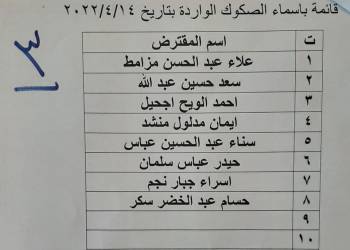 قائمة باسماء الصكوك الواردة بتاريخ ٢٠٢٢/٤/١٤
ت اسم المقترض
١ علاء عبد الحسن مزامط
٢ سعد حسين عبد الله
٣ احمد الويح اجحيل
٤ ايمان مدلول منشد
٥ سناء عبد الحسين عباس
٦ حيدر عباس سلمان
٧ اسراء جبار نجم
٨ حسام عبد الخضر سكر
٩
١٠